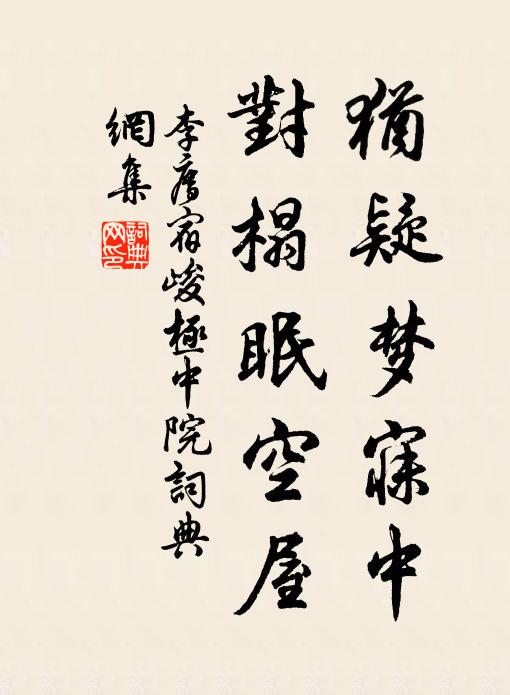 猶疑梦寐中
對榻眠空屋
李廌宿峻極中院詞典
網集
詞典网印